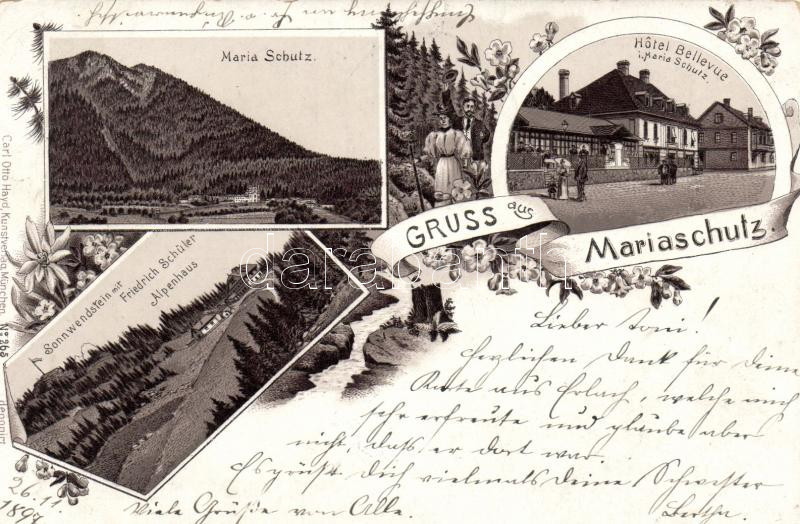 Maria Schutz.
Hôtel Bellevue
i. Maria Schutz.
GRUSS aus
Mariaschutz.
Sonnwendstein mit
Friedrich Schüler
Alpenhaus
Carl Otto Hayd, Kunstverlag, München.
No 265
darabanth.com
Lieber Toni!
Herzlichen Dank für Deine
Karte aus Erlach, welche mich
sehr erfreute und glaube aber
nicht, dass er dort war.
Es grüßt Dich vielmals Deine Schwester
Bertha.
Viele Grüße von Alle.
26.11.
1897